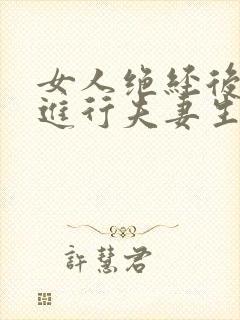 女人绝经後
進行夫妻生
許慧君